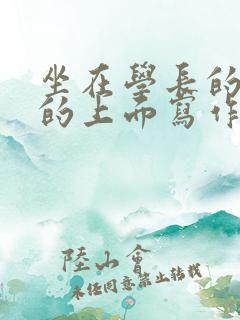 坐在學長的
的上而寫作
陸山會
未經同意禁止轉載